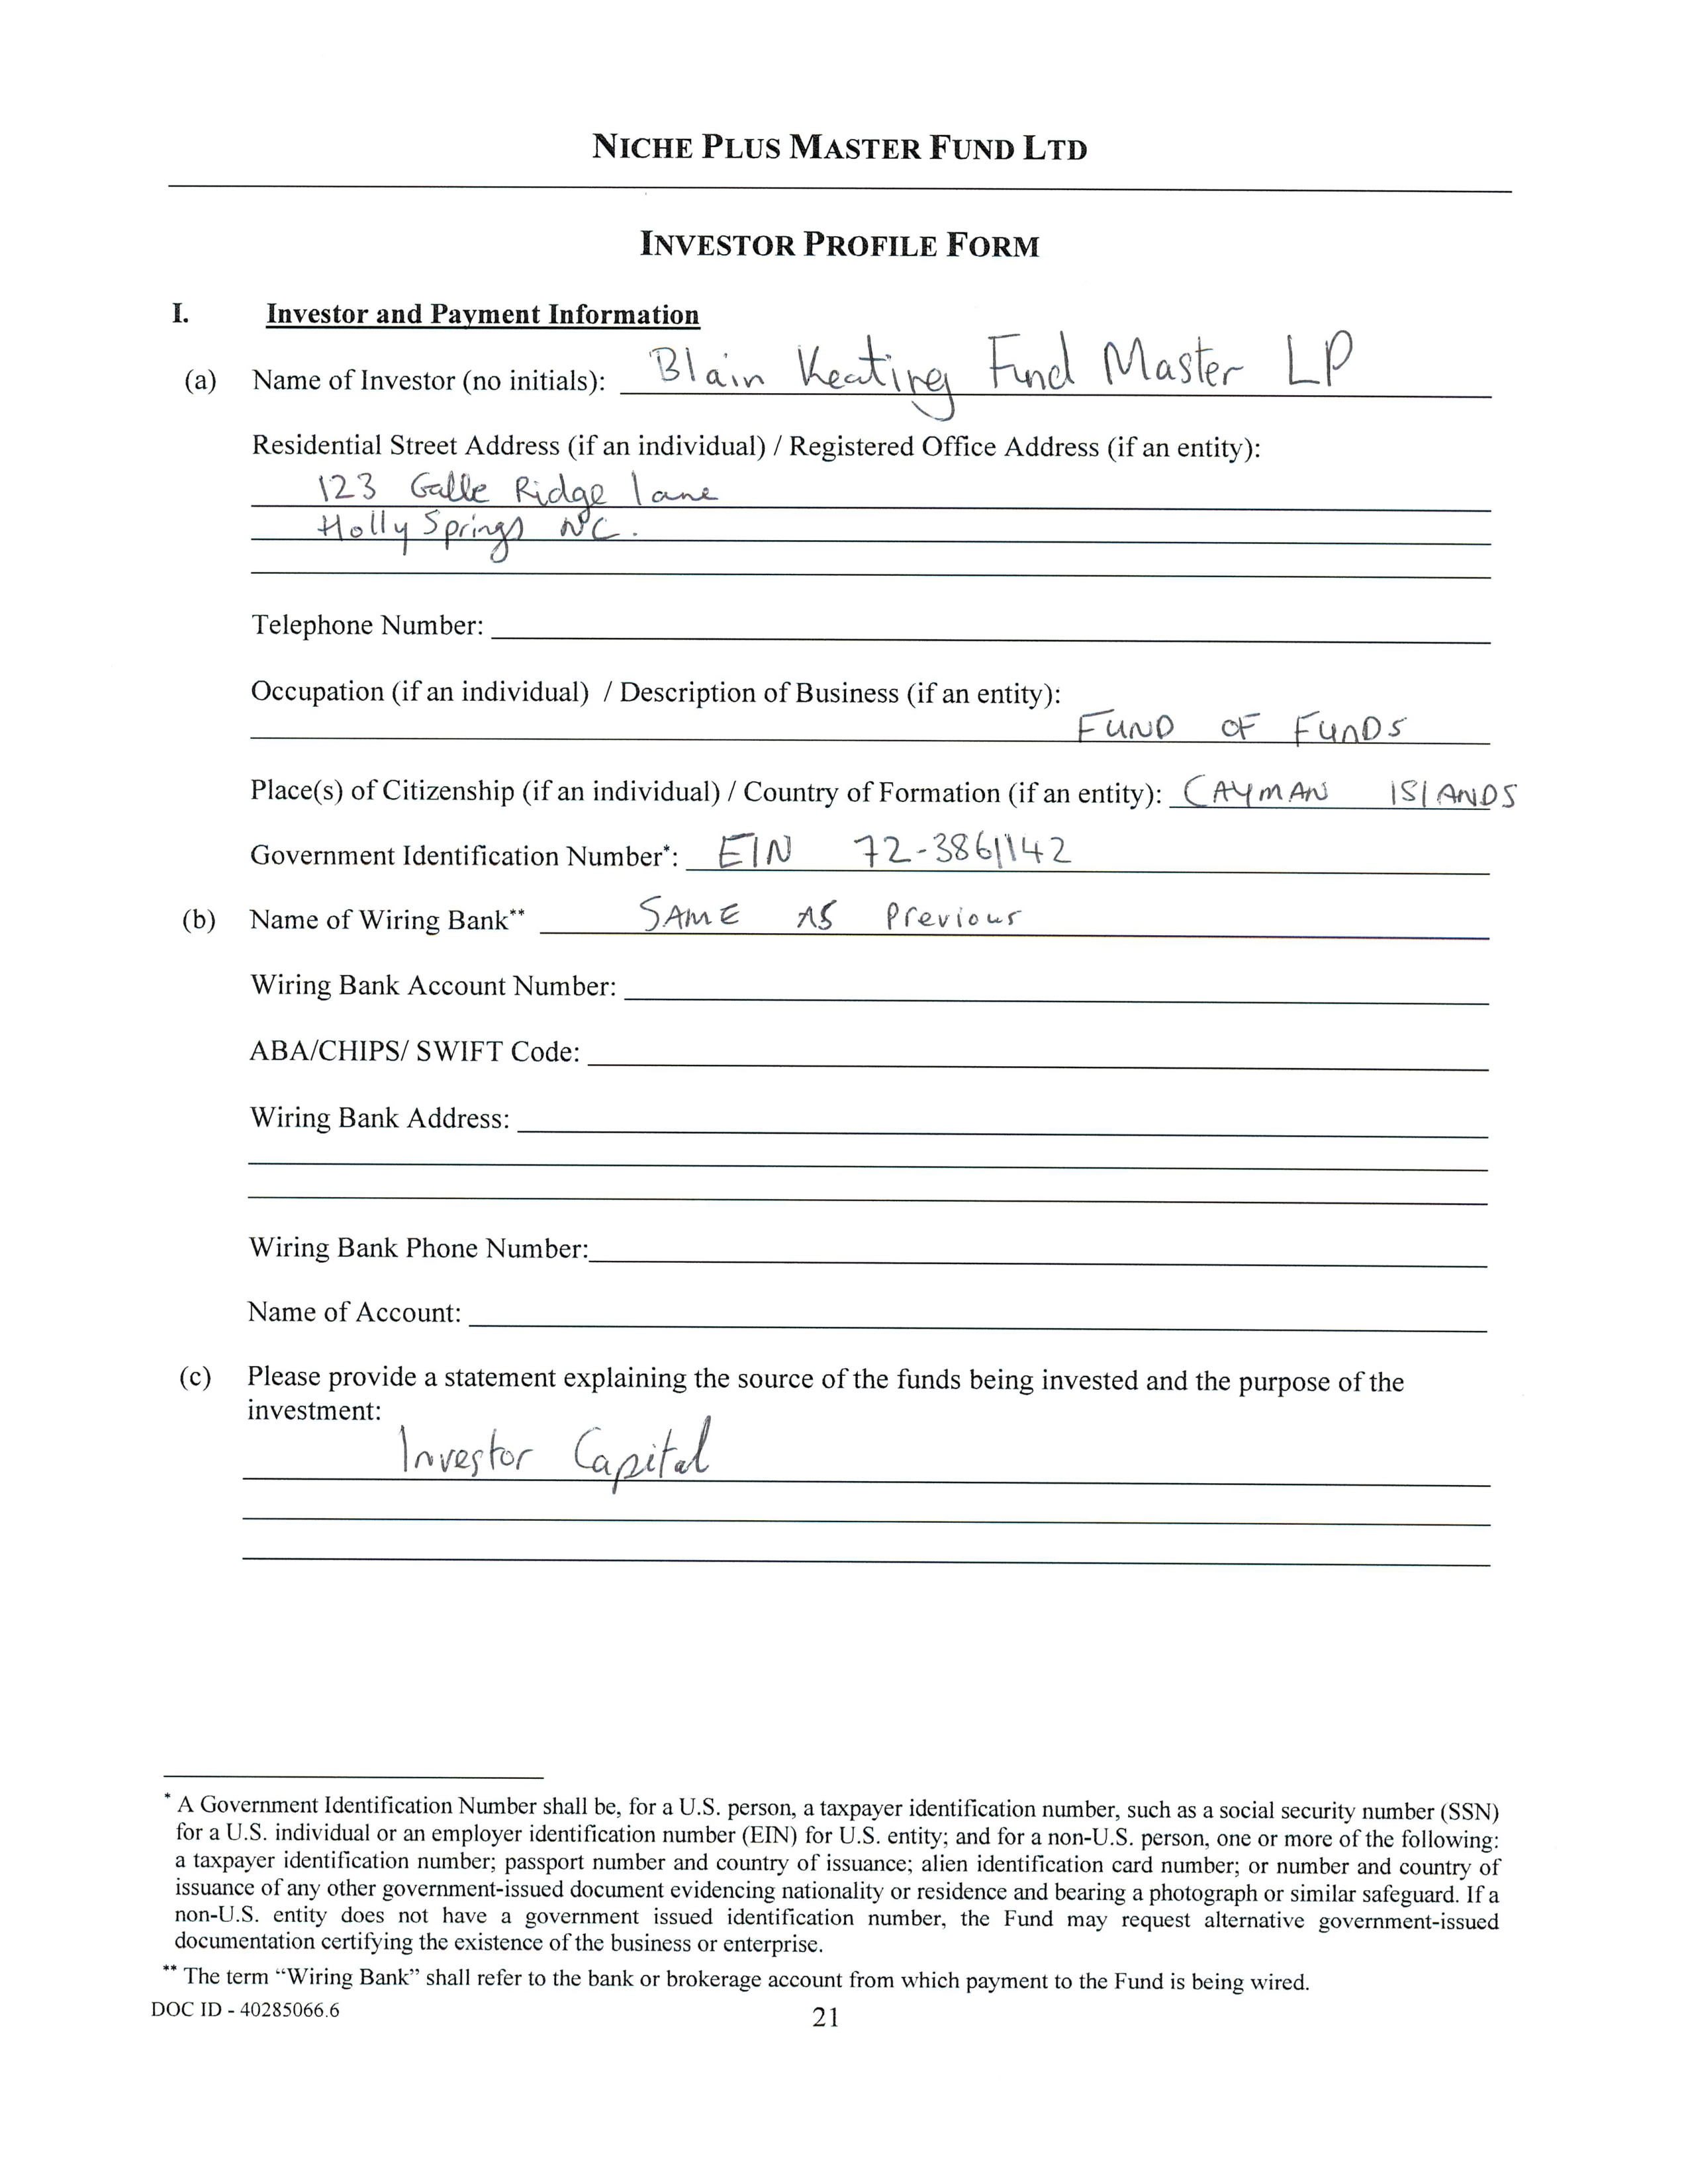 NICHE PLUS MASTER FUND LTD
INVESTOR PROFILE FORM
I. Investor and Payment Information
(a) Name of Investor (no initials): Blain Keating Fund Master LP
Residential Street Address (if an individual) / Registered Office Address (if an entity):
123 Galle Ridge lane
Holly Springs NC.
Telephone Number:
Occupation (if an individual) / Description of Business (if an entity):
FUND OF FUNDS
Place(s) of Citizenship (if an individual) / Country of Formation (if an entity): CAYMAN ISLANDS
Government Identification Number*: EIN 72-3861142
(b) Name of Wiring Bank** SAME AS Previous
Wiring Bank Account Number:
ABA/CHIPS/ SWIFT Code:
Wiring Bank Address:
Wiring Bank Phone Number:
Name of Account:
(c) Please provide a statement explaining the source of the funds being invested and the purpose of the
investment:
Investor Capital
* A Government Identification Number shall be, for a U.S. person, a taxpayer identification number, such as a social security number (SSN)
for a U.S. individual or an employer identification number (EIN) for U.S. entity; and for a non-U.S. person, one or more of the following:
a taxpayer identification number; passport number and country of issuance; alien identification card number; or number and country of
issuance of any other government-issued document evidencing nationality or residence and bearing a photograph or similar safeguard. If a
non-U.S. entity does not have a government issued identification number, the Fund may request alternative government-issued
documentation certifying the existence of the business or enterprise.
** The term “Wiring Bank” shall refer to the bank or brokerage account from which payment to the Fund is being wired.
DOC ID - 40285066.6
21